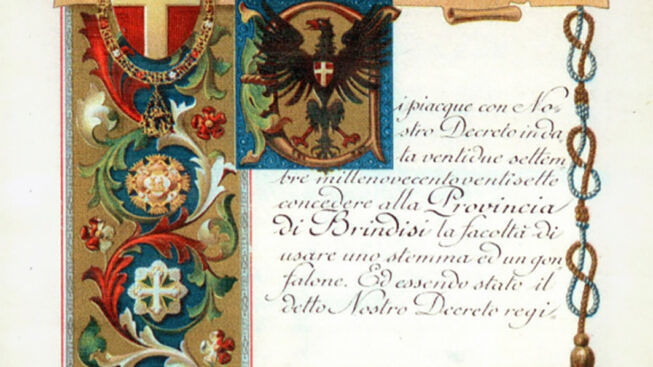 i piacque con No=
stro Decreto in da
ta ventidue settem
bre millenovecentoventisette
concedere alla Provincia
di Brindisi la facoltà di
usare uno stemma ed un gon
falone. Ed essendo stato il
detto Nostro Decreto regi=